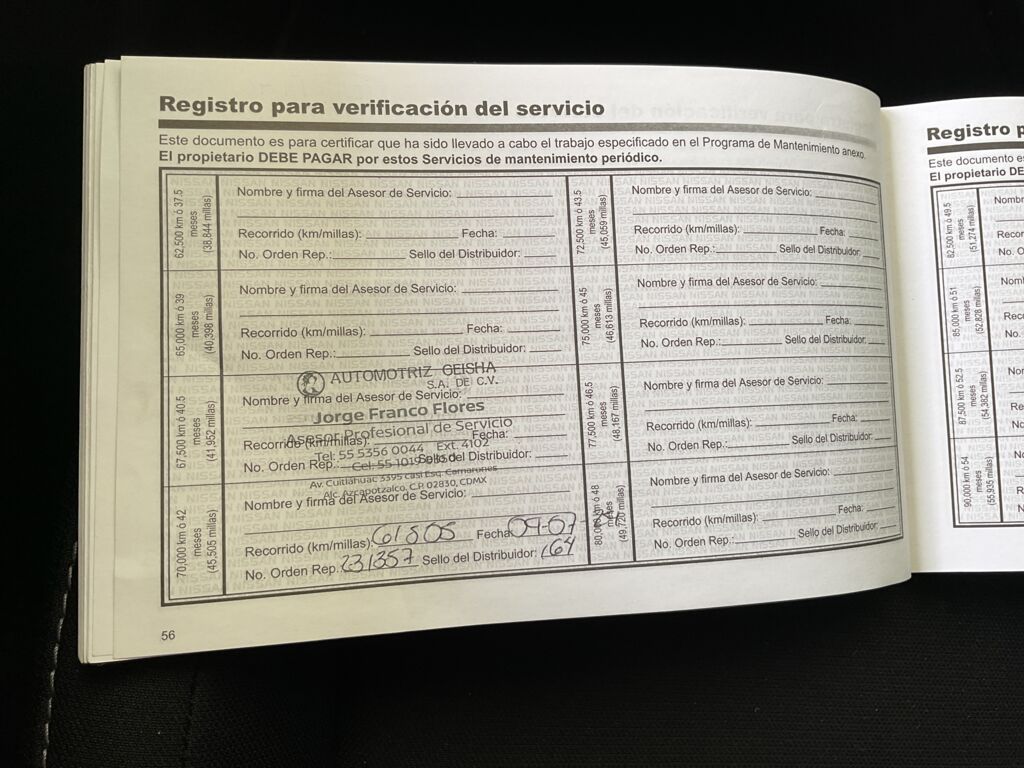 Registro para verificación del servicio
Este documento es para certificar que ha sido llevado a cabo el trabajo especificado en el Programa de Mantenimiento anexo.
El propietario DEBE PAGAR por estos Servicios de mantenimiento periódico.
62,500 km ó 37.5
meses
(38,844 millas)
Nombre y firma del Asesor de Servicio:
Recorrido (km/millas): Fecha:
No. Orden Rep.: Sello del Distribuidor:
65,000 km ó 39
meses
(40,398 millas)
Nombre y firma del Asesor de Servicio:
Recorrido (km/millas): Fecha:
No. Orden Rep.: Sello del Distribuidor:
67,500 km ó 40.5
meses
(41,952 millas)
AUTOMOTRIZ GEISHA
S.A. DE C.V.
Nombre y firma del Asesor de Servicio:
Jorge Franco Flores
Asesor Profesional de Servicio
Recorrido (km/millas): Fecha:
Tel: 55 5356 0044 Ext. 4102
No. Orden Rep. Sello del Distribuidor:
Av. Cuitláhuac 3395 casi Esq. Camarones
Alc. Azcapotzalco, C.P. 02830, CDMX
70,000 km ó 42
meses
(45,505 millas)
Nombre y firma del Asesor de Servicio:
Recorrido (km/millas): 61805 Fecha: 09-07
No. Orden Rep. 231357 Sello del Distribuidor: 164
72,500 km ó 43.5
meses
(45,059 millas)
Nombre y firma del Asesor de Servicio:
Recorrido (km/millas): Fecha:
No. Orden Rep.: Sello del Distribuidor:
75,000 km ó 45
meses
(46,613 millas)
Nombre y firma del Asesor de Servicio:
Recorrido (km/millas): Fecha:
No. Orden Rep.: Sello del Distribuidor:
77,500 km ó 46.5
meses
(48,167 millas)
Nombre y firma del Asesor de Servicio:
Recorrido (km/millas): Fecha:
No. Orden Rep.: Sello del Distribuidor:
80,000 km ó 48
meses
(49,720 millas)
Nombre y firma del Asesor de Servicio:
Recorrido (km/millas): Fecha:
No. Orden Rep.: Sello del Distribuidor:
56
Registro p
Este documento es
El propietario DE
82,500 km ó 49.5
meses
(51,274 millas)
Nomb
Recor
No. O
85,000 km ó 51
meses
(52,828 millas)
Nom
Reco
No.
87,500 km ó 52.5
meses
(54,382 millas)
No
Re
No
90,000 km ó 54
meses
(55,935 millas)
No
R
N